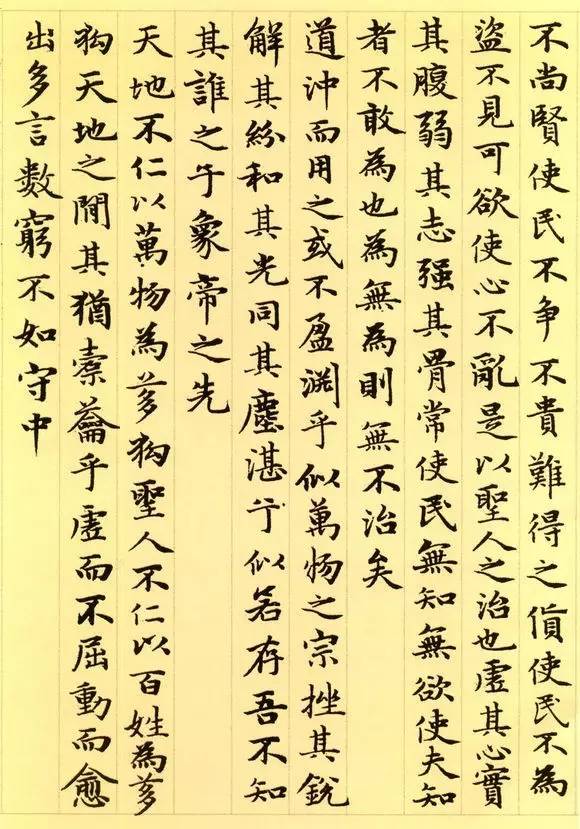 不尚賢使民不争不貴難得之貨使民不為
盜不見可欲使心不亂是以聖人之治也虛其心實
其腹弱其志强其骨常使民無知無欲使夫知
者不敢為也為無為則無不治矣
道沖而用之或不盈淵乎似萬物之宗挫其銳
解其紛和其光同其塵湛乎似若存吾不知
其誰之子象帝之先
天地不仁以萬物為芻狗聖人不仁以百姓為芻
狗天地之間其猶橐籥乎虛而不屈動而愈
出多言數窮不如守中